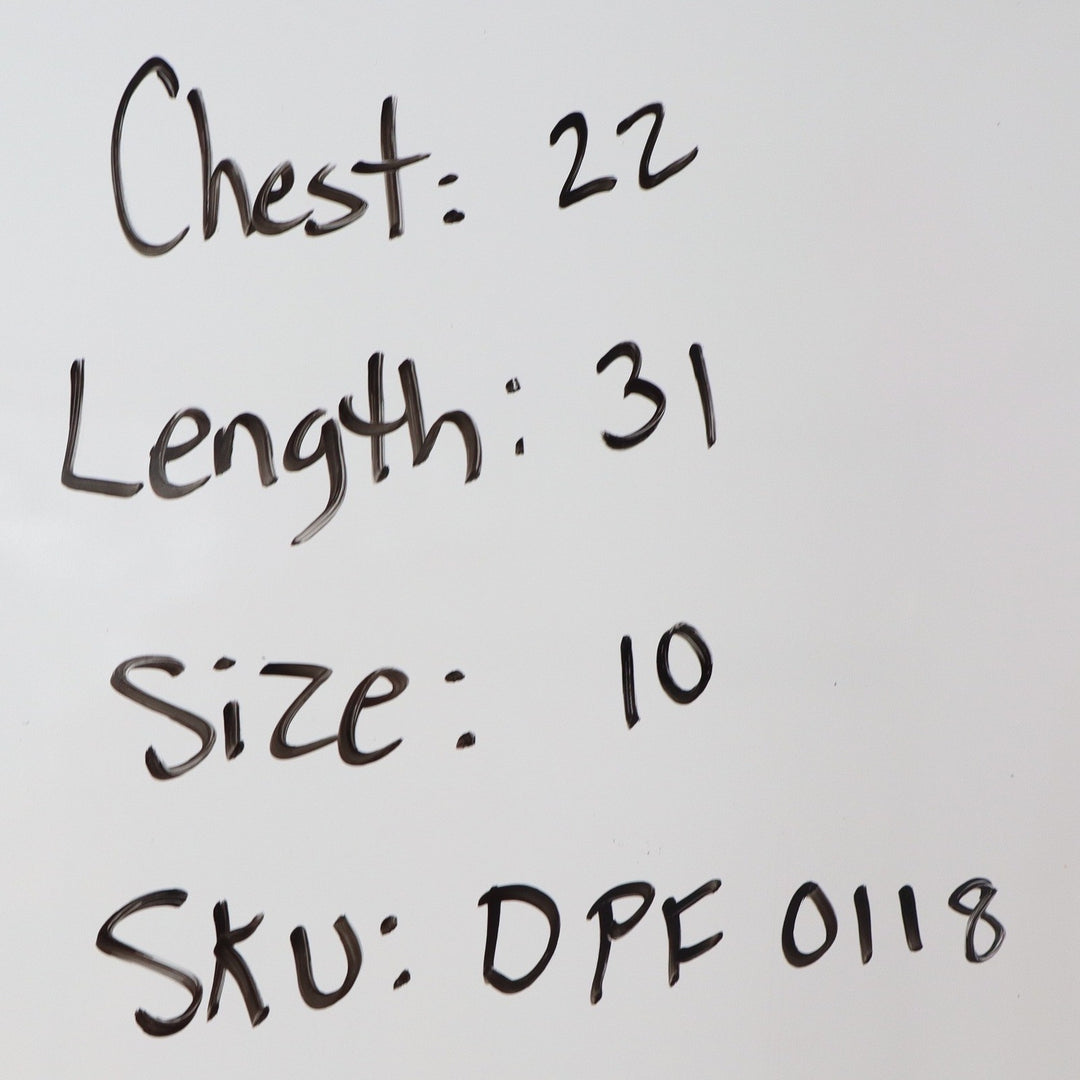 Chest: 22
Length: 31
Size: 10
SKU: DPF 0118